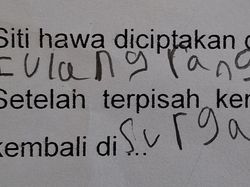 Siti hawa diciptakan
Iulang rang
Setelah terpisah
kembali di ... Surga